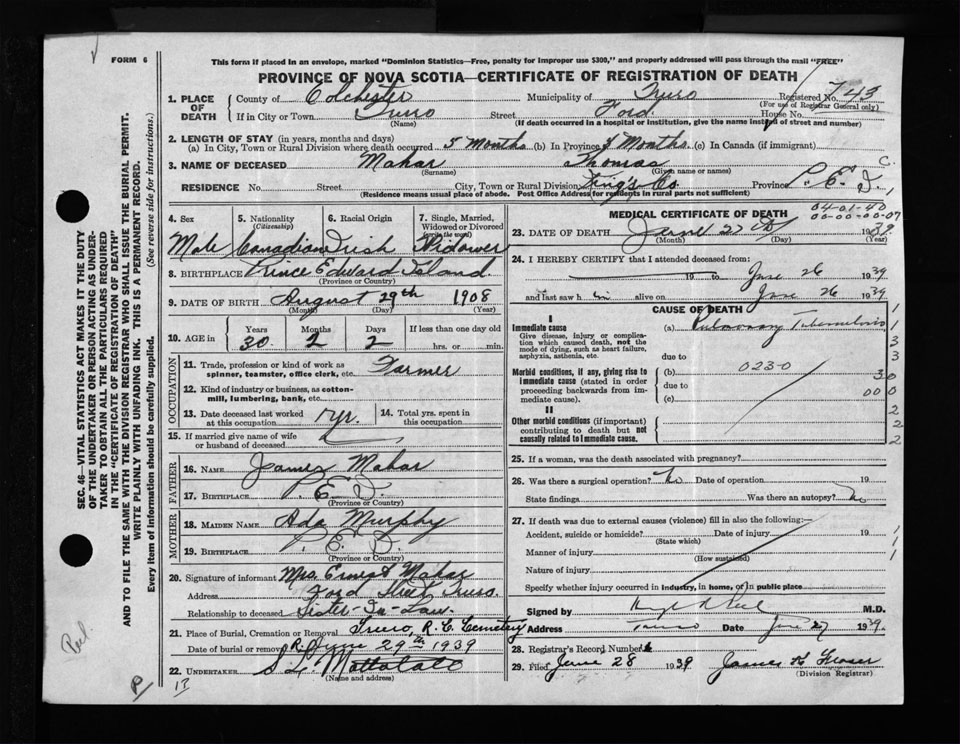 FORM 6
This form if placed in an envelope, marked "Dominion Statistics—Free, penalty for improper use $300," and properly addressed will pass through the mail "FREE"
PROVINCE OF NOVA SCOTIA—CERTIFICATE OF REGISTRATION OF DEATH
1. PLACE OF DEATH County of Colchester Municipality of Truro Registered No. 743
(For use of Registrar General only)
If in City or Town Truro Street Ford House No.
(Name) (If death occurred in a hospital or institution, give the name instead of street and number)
2. LENGTH OF STAY (in years, months and days)
(a) In City, Town or Rural Division where death occurred 5 Months (b) In Province Months (c) In Canada (if immigrant)
3. NAME OF DECEASED Mahar Thomas C.
(Surname) (Given name or names)
RESIDENCE No. Street City, Town or Rural Division King's Co. Province P. E. I.,
(Residence means usual place of abode. Post Office Address for residents in rural parts not sufficient)
4. Sex 5. Nationality 6. Racial Origin 7. Single, Married,
(Citizenship) Widowed or Divorced
(write the word)
Male Canadian Irish Widower
8. BIRTHPLACE Prince Edward Island.
(Province or Country)
9. DATE OF BIRTH August 29th 1908
(Month) (Day) (Year)
10. AGE in Years Months Days If less than one day old
30 2 2 hrs. or min.
OCCUPATION
11. Trade, profession or kind of work as
spinner, teamster, office clerk, etc. Farmer
12. Kind of industry or business, as cotton-
mill, lumbering, bank, etc.
13. Date deceased last worked at this occupation 1 yr. 14. Total yrs. spent in this occupation
15. If married give name of wife
or husband of deceased
FATHER
16. NAME James Mahar
17. BIRTHPLACE P. E. I.
(Province or Country)
MOTHER
18. MAIDEN NAME Ada Murphy
19. BIRTHPLACE P. E. I.
(Province or Country)
20. Signature of informant Mrs. Ernest Mahar
Address Ford Street Truro.
Relationship to deceased Sister-In-Law.
21. Place of Burial, Cremation or Removal Truro, R. C. Cemetery
Date of burial or removal June 29th 1939
22. UNDERTAKER
(Name and address)
MEDICAL CERTIFICATE OF DEATH
04-01-40
00-00-00-07
23. DATE OF DEATH June 27th 1939
(Month) (Day) (Year)
24. I HEREBY CERTIFY that I attended deceased from:
19 to June 26 1939
and last saw him alive on June 26 1939
CAUSE OF DEATH
I
Immediate cause (a) Pulmonary Tuberculosis
Give disease, injury or complica-
tion which caused death, not the
mode of dying, such as heart failure,
asphyxia, asthenia, etc. due to
Morbid conditions, if any, giving rise to (b) 023-0
immediate cause (stated in order due to
proceeding backwards from im-
mediate cause). (c)
II
Other morbid conditions (if important)
contributing to death but not
causally related to immediate cause.
1
1
3
3
30
000
2
2
2
25. If a woman, was the death associated with pregnancy?
26. Was there a surgical operation? No Date of operation 19
State findings Was there an autopsy? No
27. If death was due to external causes (violence) fill in also the following:—
Accident, suicide or homicide? Date of injury 19
(State which)
Manner of injury
(How sustained)
Nature of injury
Specify whether injury occurred in industry, in home, or in public place
1
1
1
Signed by M.D.
Address Truro Date June 27 1939.
28. Registrar's Record Number
29. Filed June 28 1939 James K Fraser
(Division Registrar)
SEC. 46—VITAL STATISTICS ACT MAKES IT THE DUTY
OF THE UNDERTAKER OR PERSON ACTING AS UNDER-
TAKER TO OBTAIN ALL THE PARTICULARS REQUIRED
IN THE "CERTIFICATE OF REGISTRATION OF DEATH"
AND TO FILE THE SAME WITH THE DIVISION REGISTRAR WHO SHALL ISSUE THE BURIAL PERMIT.
WRITE PLAINLY WITH UNFADING INK. THIS IS A PERMANENT RECORD.
Every item of information should be carefully supplied. (See reverse side for instructions.)
Peel.
P
13